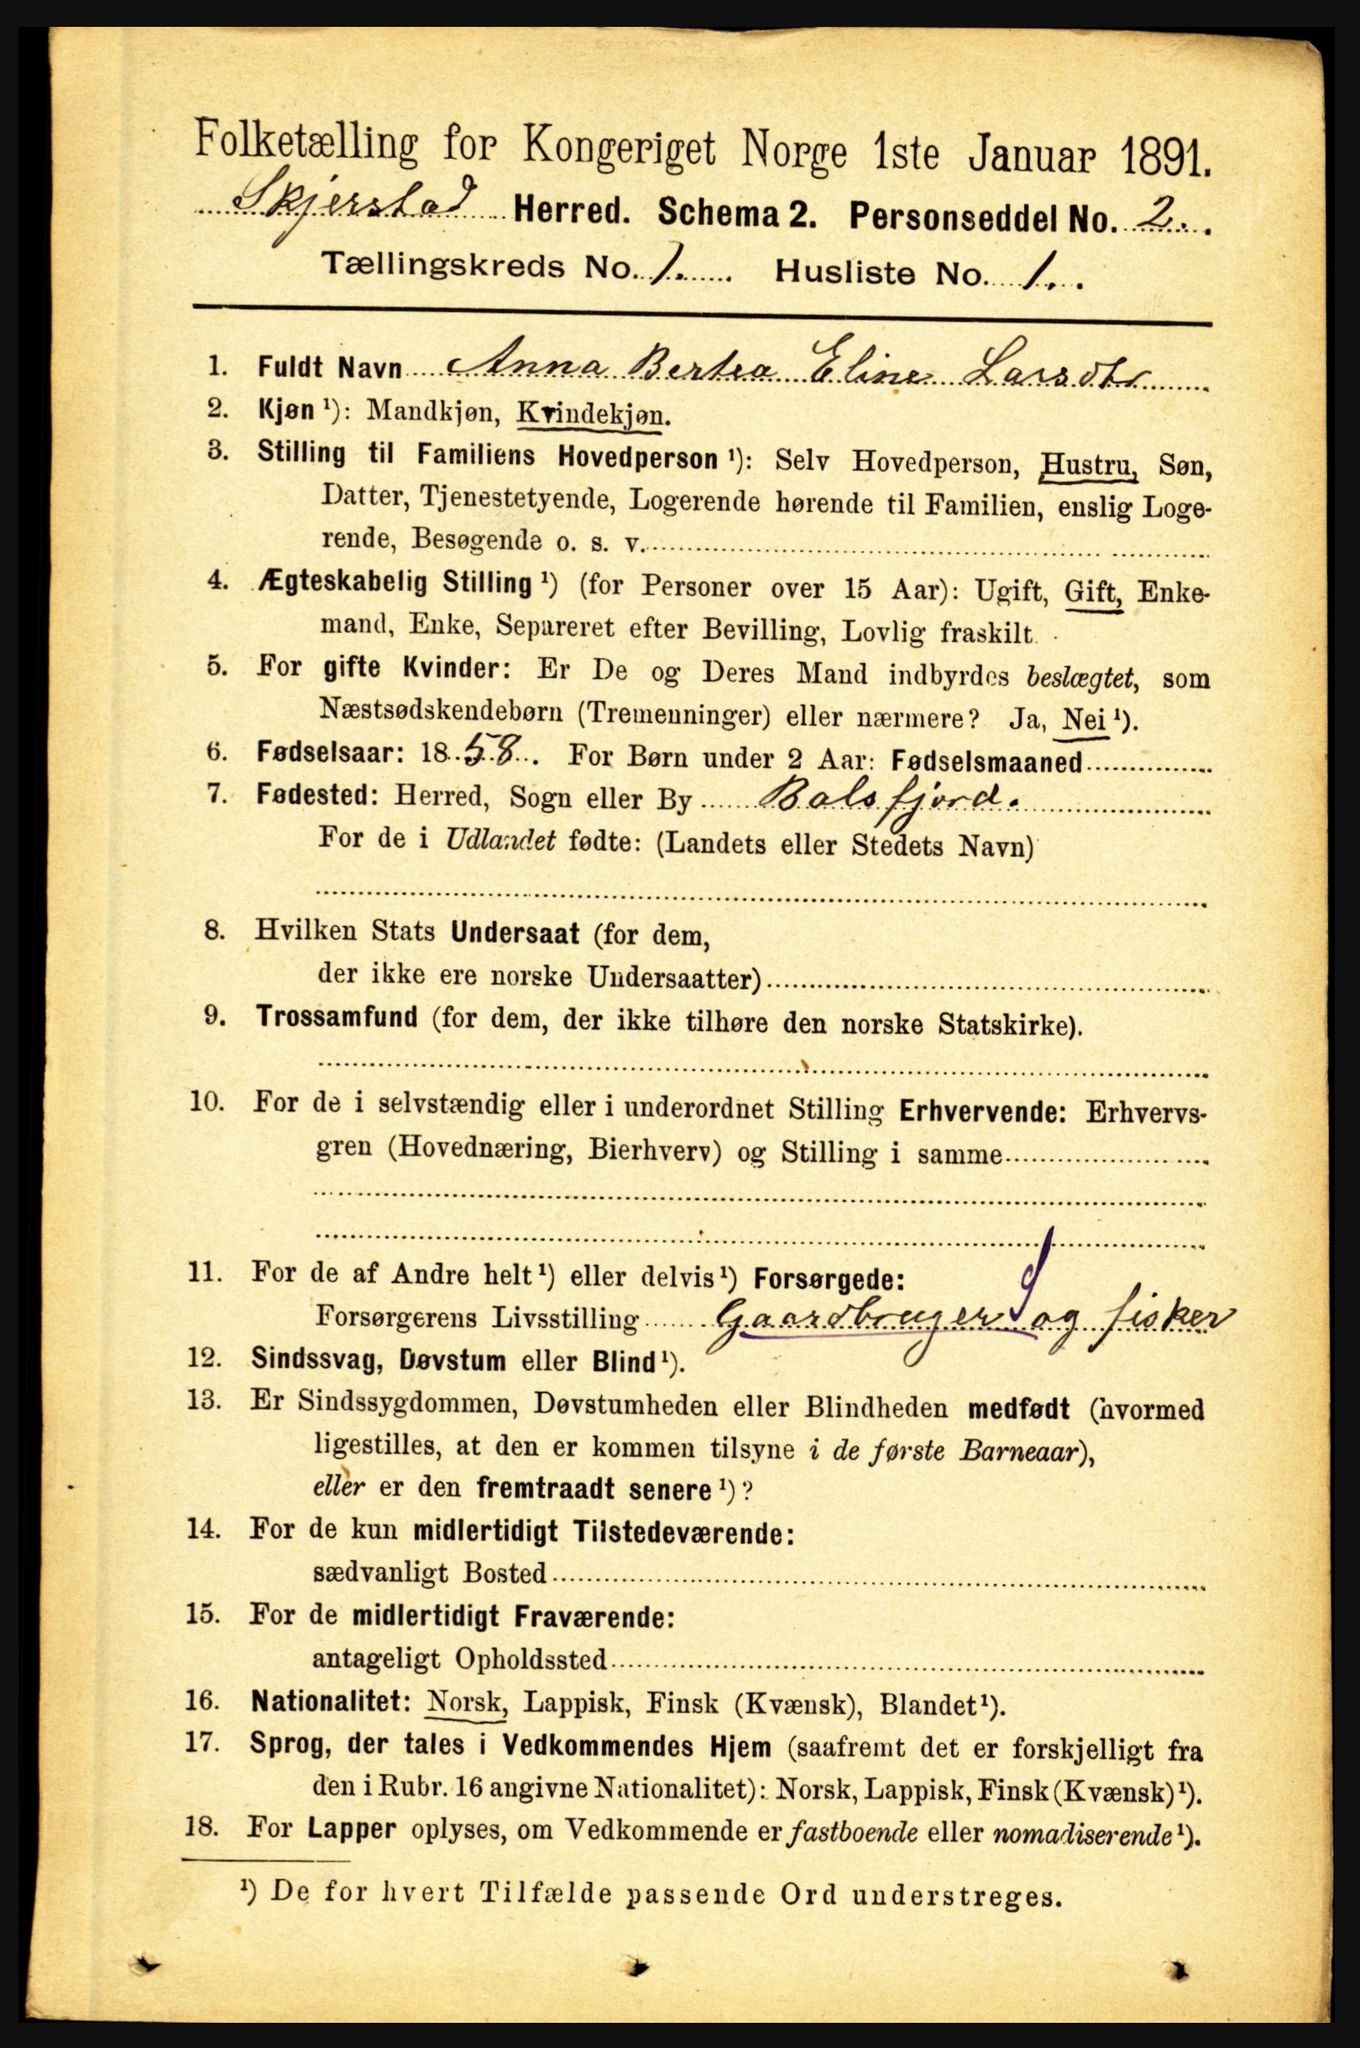 Folketælling for Kongeriget Norge 1ste Januar 1891.
Skjerstad Herred. Schema 2. Personseddel No. 2.
Tællingskreds No. 1. Husliste No. 1.
1. Fuldt Navn Anna Bertea Eline Larsdtr
2. Kjøn ¹): Mandkjøn, Kvindekjøn.
3. Stilling til Familiens Hovedperson ¹): Selv Hovedperson, Hustru, Søn,
Datter, Tjenestetyende, Logerende hørende til Familien, enslig Loge-
rende, Besøgende o. s. v.
4. Ægteskabelig Stilling ¹) (for Personer over 15 Aar): Ugift, Gift, Enke-
mand, Enke, Separeret efter Bevilling, Lovlig fraskilt.
5. For gifte Kvinder: Er De og Deres Mand indbyrdes beslægtet, som
Næstsødskendebørn (Tremenninger) eller nærmere? Ja, Nei ¹).
6. Fødselsaar: 1858. For Børn under 2 Aar: Fødselsmaaned
7. Fødested: Herred, Sogn eller By Balsfjord.
For de i Udlandet fødte: (Landets eller Stedets Navn)
8. Hvilken Stats Undersaat (for dem,
der ikke ere norske Undersaatter)
9. Trossamfund (for dem, der ikke tilhøre den norske Statskirke).
10. For de i selvstændig eller i underordnet Stilling Erhvervende: Erhvervs-
gren (Hovednæring, Bierhverv) og Stilling i samme
11. For de af Andre helt ¹) eller delvis ¹) Forsørgede:
Forsørgerens Livsstilling Gaardbruger og fisker
12. Sindssvag, Døvstum eller Blind ¹).
13. Er Sindssygdommen, Døvstumheden eller Blindheden medfødt (hvormed
ligestilles, at den er kommen tilsyne i de første Barneaar),
eller er den fremtraadt senere ¹)?
14. For de kun midlertidigt Tilstedeværende:
sædvanligt Bosted
15. For de midlertidigt Fraværende:
antageligt Opholdssted
16. Nationalitet: Norsk, Lappisk, Finsk (Kvænsk), Blandet ¹).
17. Sprog, der tales i Vedkommendes Hjem (saafremt det er forskjelligt fra
den i Rubr. 16 angivne Nationalitet): Norsk, Lappisk, Finsk (Kvænsk) ¹).
18. For Lapper oplyses, om Vedkommende er fastboende eller nomadiserende ¹).
¹) De for hvert Tilfælde passende Ord understreges.